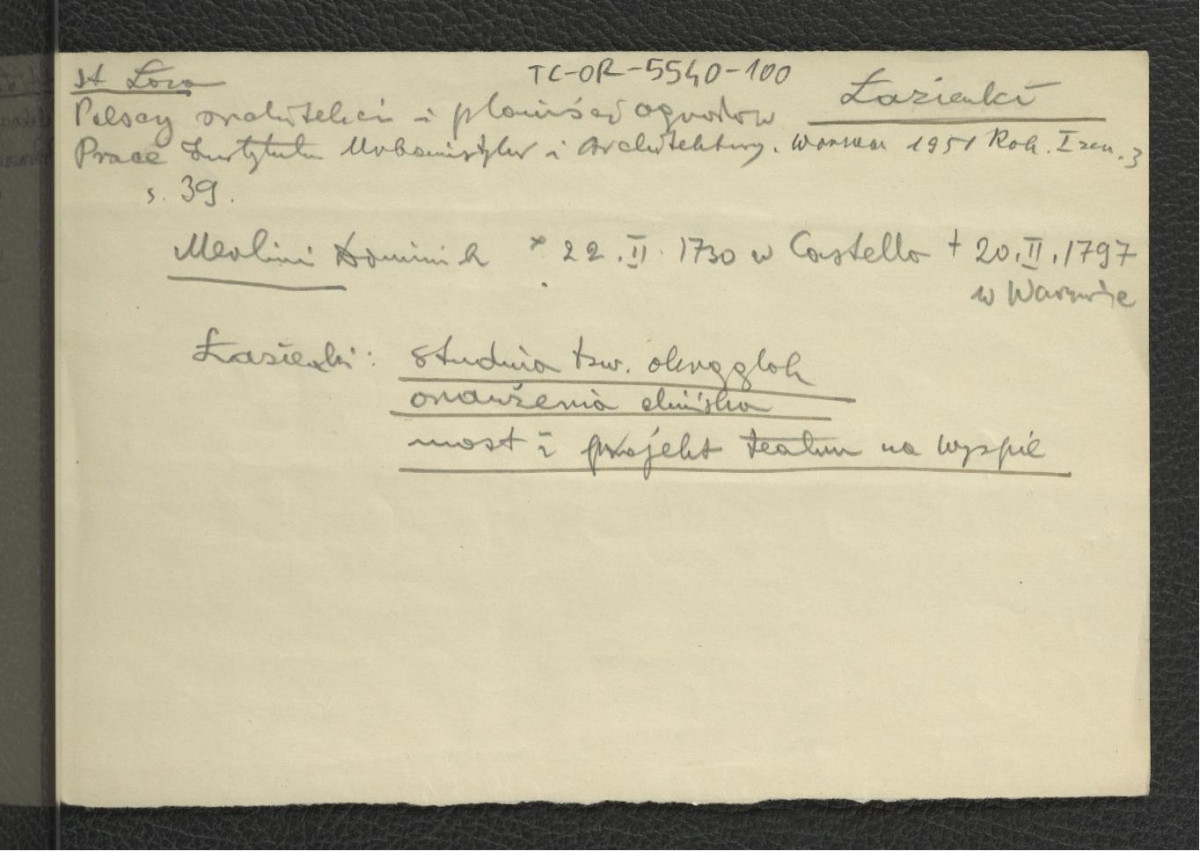 St Łoza
TC-OR-5540-100
Łazienki
Polscy architekci i planiści ogrodów
Prace Instytutu Urbanistyki i Architektury. Warszawa 1951 Rok. I zesz. 3
s. 39.
Merlini Dominik * 22. II. 1730 w Castello † 20. II. 1797
w Warszawie
Łazienki: studnia tzw. okrąglak
oranżeria chińska
most i projekt teatru na wyspie